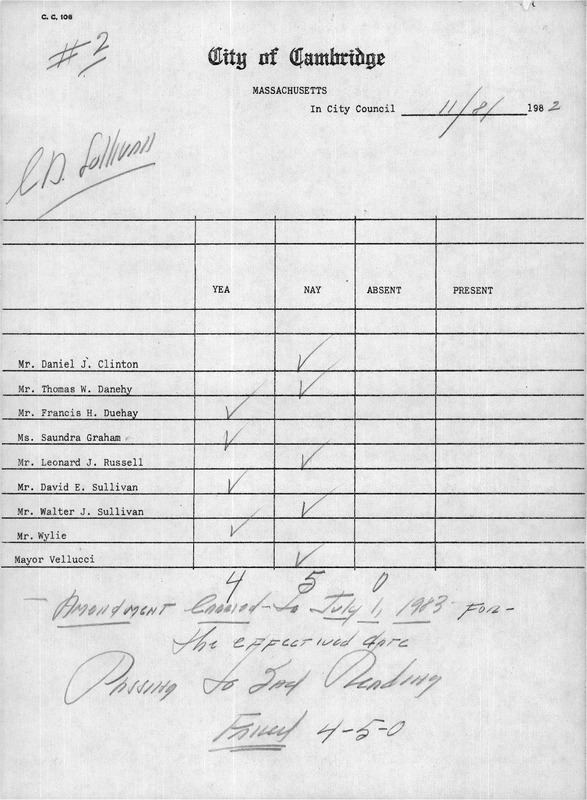 C. C. 106
#2
City of Cambridge
MASSACHUSETTS
In City Council 11/8/ 1982
C D. Sullivan
YEA NAY ABSENT PRESENT
Mr. Daniel J. Clinton ✓
Mr. Thomas W. Danehy ✓
Mr. Francis H. Duehay ✓
Ms. Saundra Graham ✓
Mr. Leonard J. Russell ✓
Mr. David E. Sullivan ✓
Mr. Walter J. Sullivan ✓
Mr. Wylie ✓
Mayor Vellucci ✓
4 5 0
- Amendment Carried - to July 1, 1983 for -
the effectived date
Passing to 2nd Reading
Failed 4-5-0